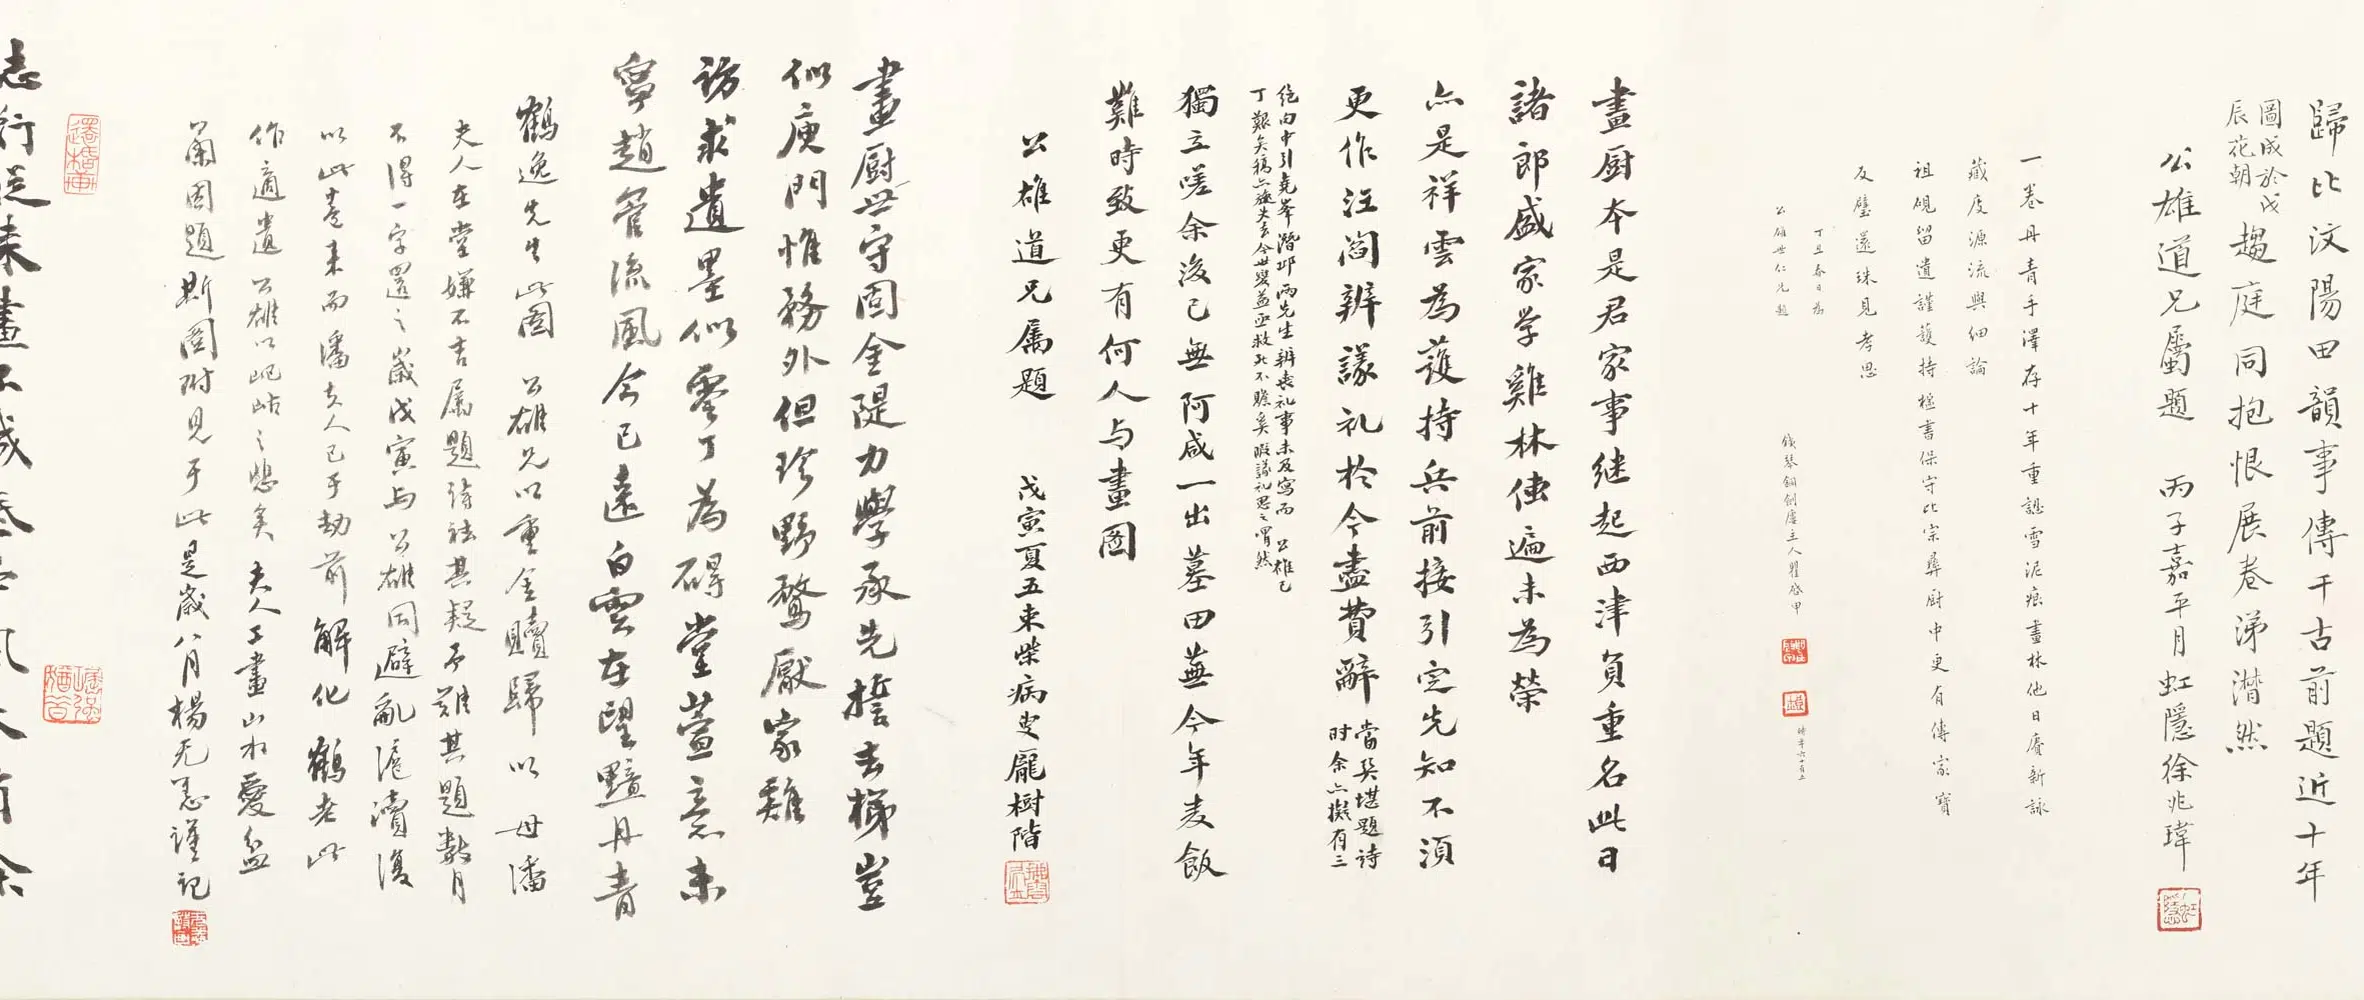 歸比汶陽田韻事傳千古前題近十年
圖成於戊
辰花朝
趨庭同抱恨展卷涕潸然
公雄道兄屬題 丙子嘉平月虹隱徐兆瑋
一卷丹青手澤存十年重認雪泥痕畫林他日賡新詠
藏庋源流與細論
祖硯留遺謹護持楹書保守比宗彝廚中更有傳家寶
反璧還珠見孝思
丁丑春日為
公雄世仁兄題
鐵琴銅劍廔主人瞿啓甲
時年六十有五
畫厨本是君家事继起西津負重名此日
諸郎盛家学雞林価遍未為榮
亦是祥雲為護持兵前接引定先知不須
更作汪閻辨議礼於今盡費辭
當癸堪題詩
时余亦擬有三
绝句中引堯峯潛邱兩先生辨喪礼事未及寫而 公雄已
丁艱矣稿亦遂失去今世變益亟救死不贍奚暇議礼思之喟然
獨立嗟余後已無阿咸一出墓田蕪今年麦飯
難時致更有何人与畫圖
公雄道兄属題 戊寅夏五束柴病叟龎樹階
畫厨世守固金隄力學承先誓去梯豈
似庾門惟務外但珍野鶩厭家雞
訪求遺墨似零丁為碍堂萱意未
寧趙管流風今已遠白雲在望黯丹青
鶴逸先生此圖 公雄兄以重金贖歸以 母潘
夫人在堂嫌不吉属題詩祛其疑予難其題數月
不得一字還之歲戊寅与公雄同避亂滬瀆復
以此卷来而潘夫人已于劫前解化鶴老此
作適遺 公雄以屺岵之悲矣 夫人工畫山水愛盆
蘭因題斯圖附見于此是歲八月楊无恙謹記
志行從来畫不减